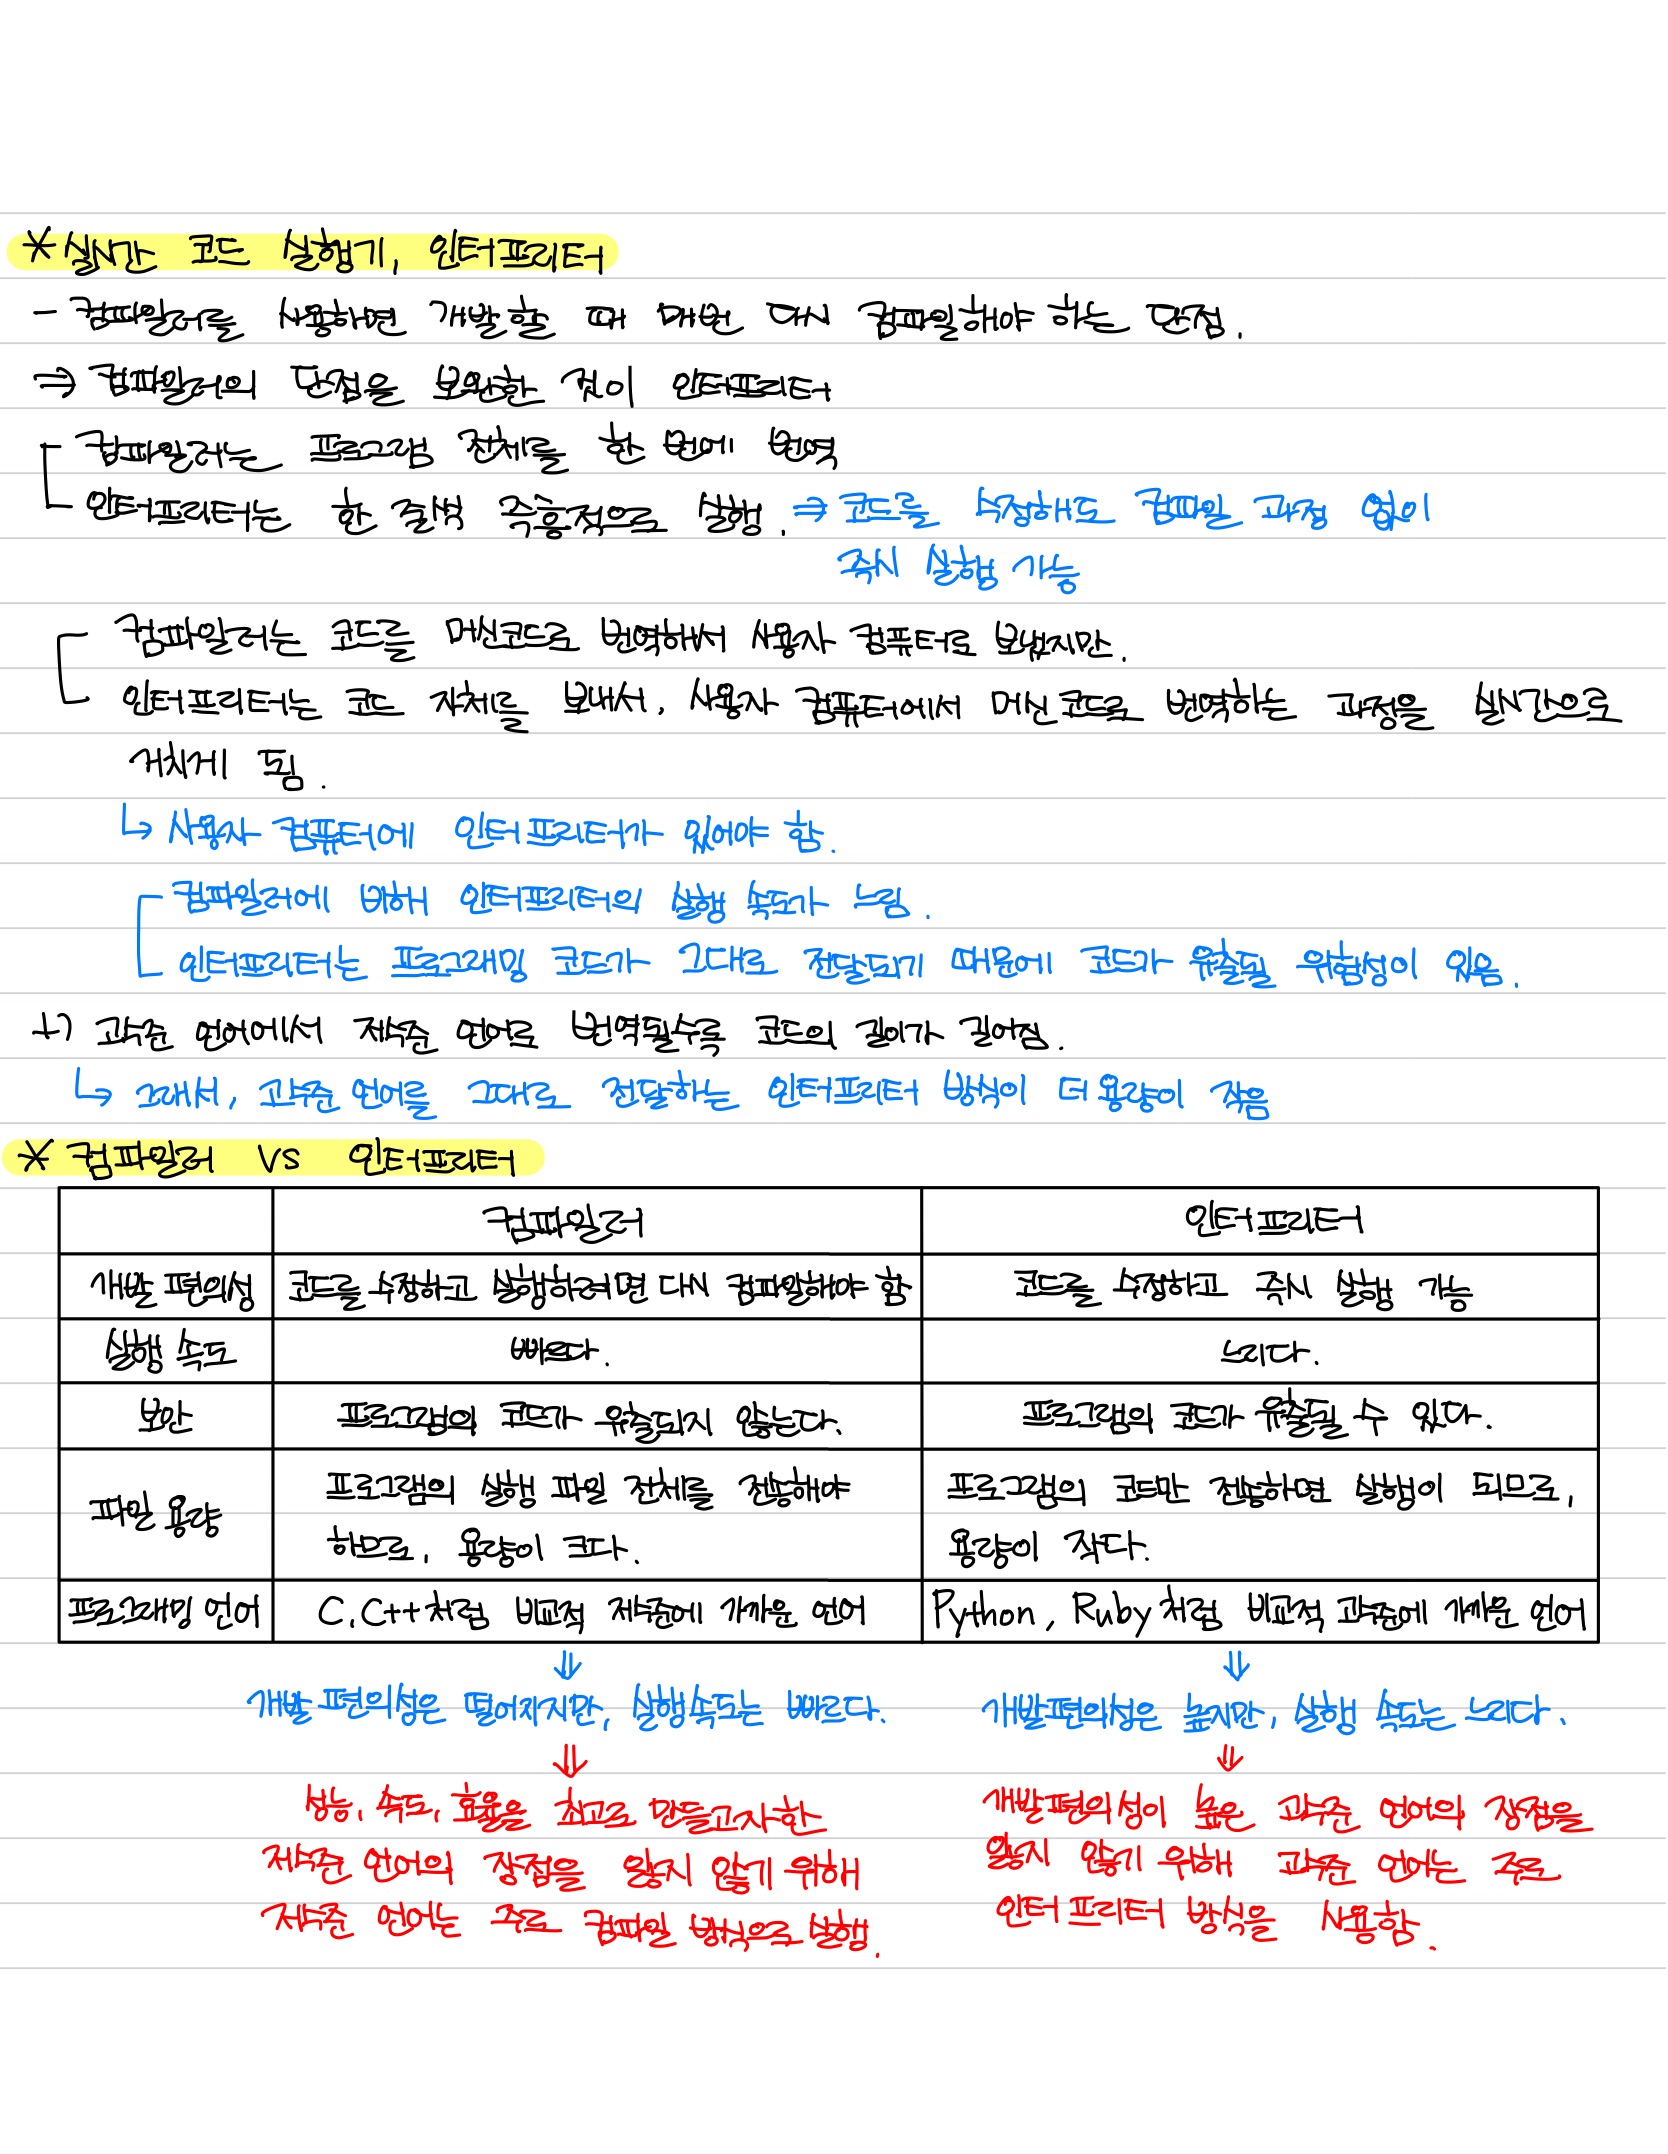 * 실시간 코드 실행기, 인터프리터
- 컴파일러를 사용하면 개발할 때 매번 다시 컴파일해야 하는 단점.
⇒ 컴파일러의 단점을 보완한 것이 인터프리터
컴파일러는 프로그램 전체를 한 번에 번역
인터프리터는 한 줄씩 즉흥적으로 실행. ⇒ 코드를 수정해도 컴파일 과정 없이
즉시 실행 가능
컴파일러는 코드를 머신코드로 번역해서 사용자 컴퓨터로 보냈지만.
인터프리터는 코드 자체를 보내서, 사용자 컴퓨터에서 머신코드로 번역하는 과정을 실시간으로
거치게 됨.
↳ 사용자 컴퓨터에 인터프리터가 있어야 함.
컴파일러에 비해 인터프리터의 실행 속도가 느림.
인터프리터는 프로그래밍 코드가 그대로 전달되기 때문에 코드가 유출될 위험성이 있음.
+) 고수준 언어에서 저수준 언어로 번역될수록 코드의 길이가 길어짐.
↳ 그래서, 고수준 언어를 그대로 전달하는 인터프리터 방식이 더 용량이 작음
* 컴파일러 VS 인터프리터
컴파일러 인터프리터
개발 편의성 코드를 수정하고 실행하려면 다시 컴파일해야 함 코드를 수정하고 즉시 실행 가능
실행 속도 빠르다. 느리다.
보안 프로그램의 코드가 유출되지 않는다. 프로그램의 코드가 유출될 수 있다.
파일 용량 프로그램의 실행 파일 전체를 전송해야 프로그램의 코드만 전송하면 실행이 되므로,
하므로, 용량이 크다. 용량이 작다.
프로그래밍 언어 C, C++처럼 비교적 저수준에 가까운 언어 Python, Ruby처럼 비교적 고수준에 가까운 언어
⇓ ⇓
개발 편의성은 떨어지지만, 실행속도는 빠르다. 개발편의성은 높지만, 실행 속도는 느리다.
⇓ ⇓
성능, 속도, 효율을 최고로 만들고자한 개발편의성이 높은 고수준 언어의 장점을
저수준 언어의 장점을 잃지 않기 위해 잃지 않기 위해 고수준 언어는 주로
저수준 언어는 주로 컴파일 방식으로 실행. 인터프리터 방식을 사용함.